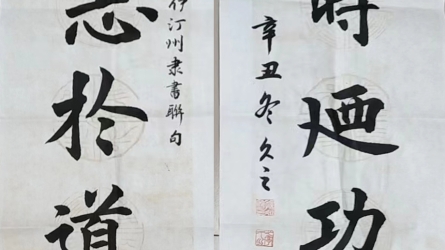 時廼功
辛丑冬久之
伊汀州隶書聯句
志於道